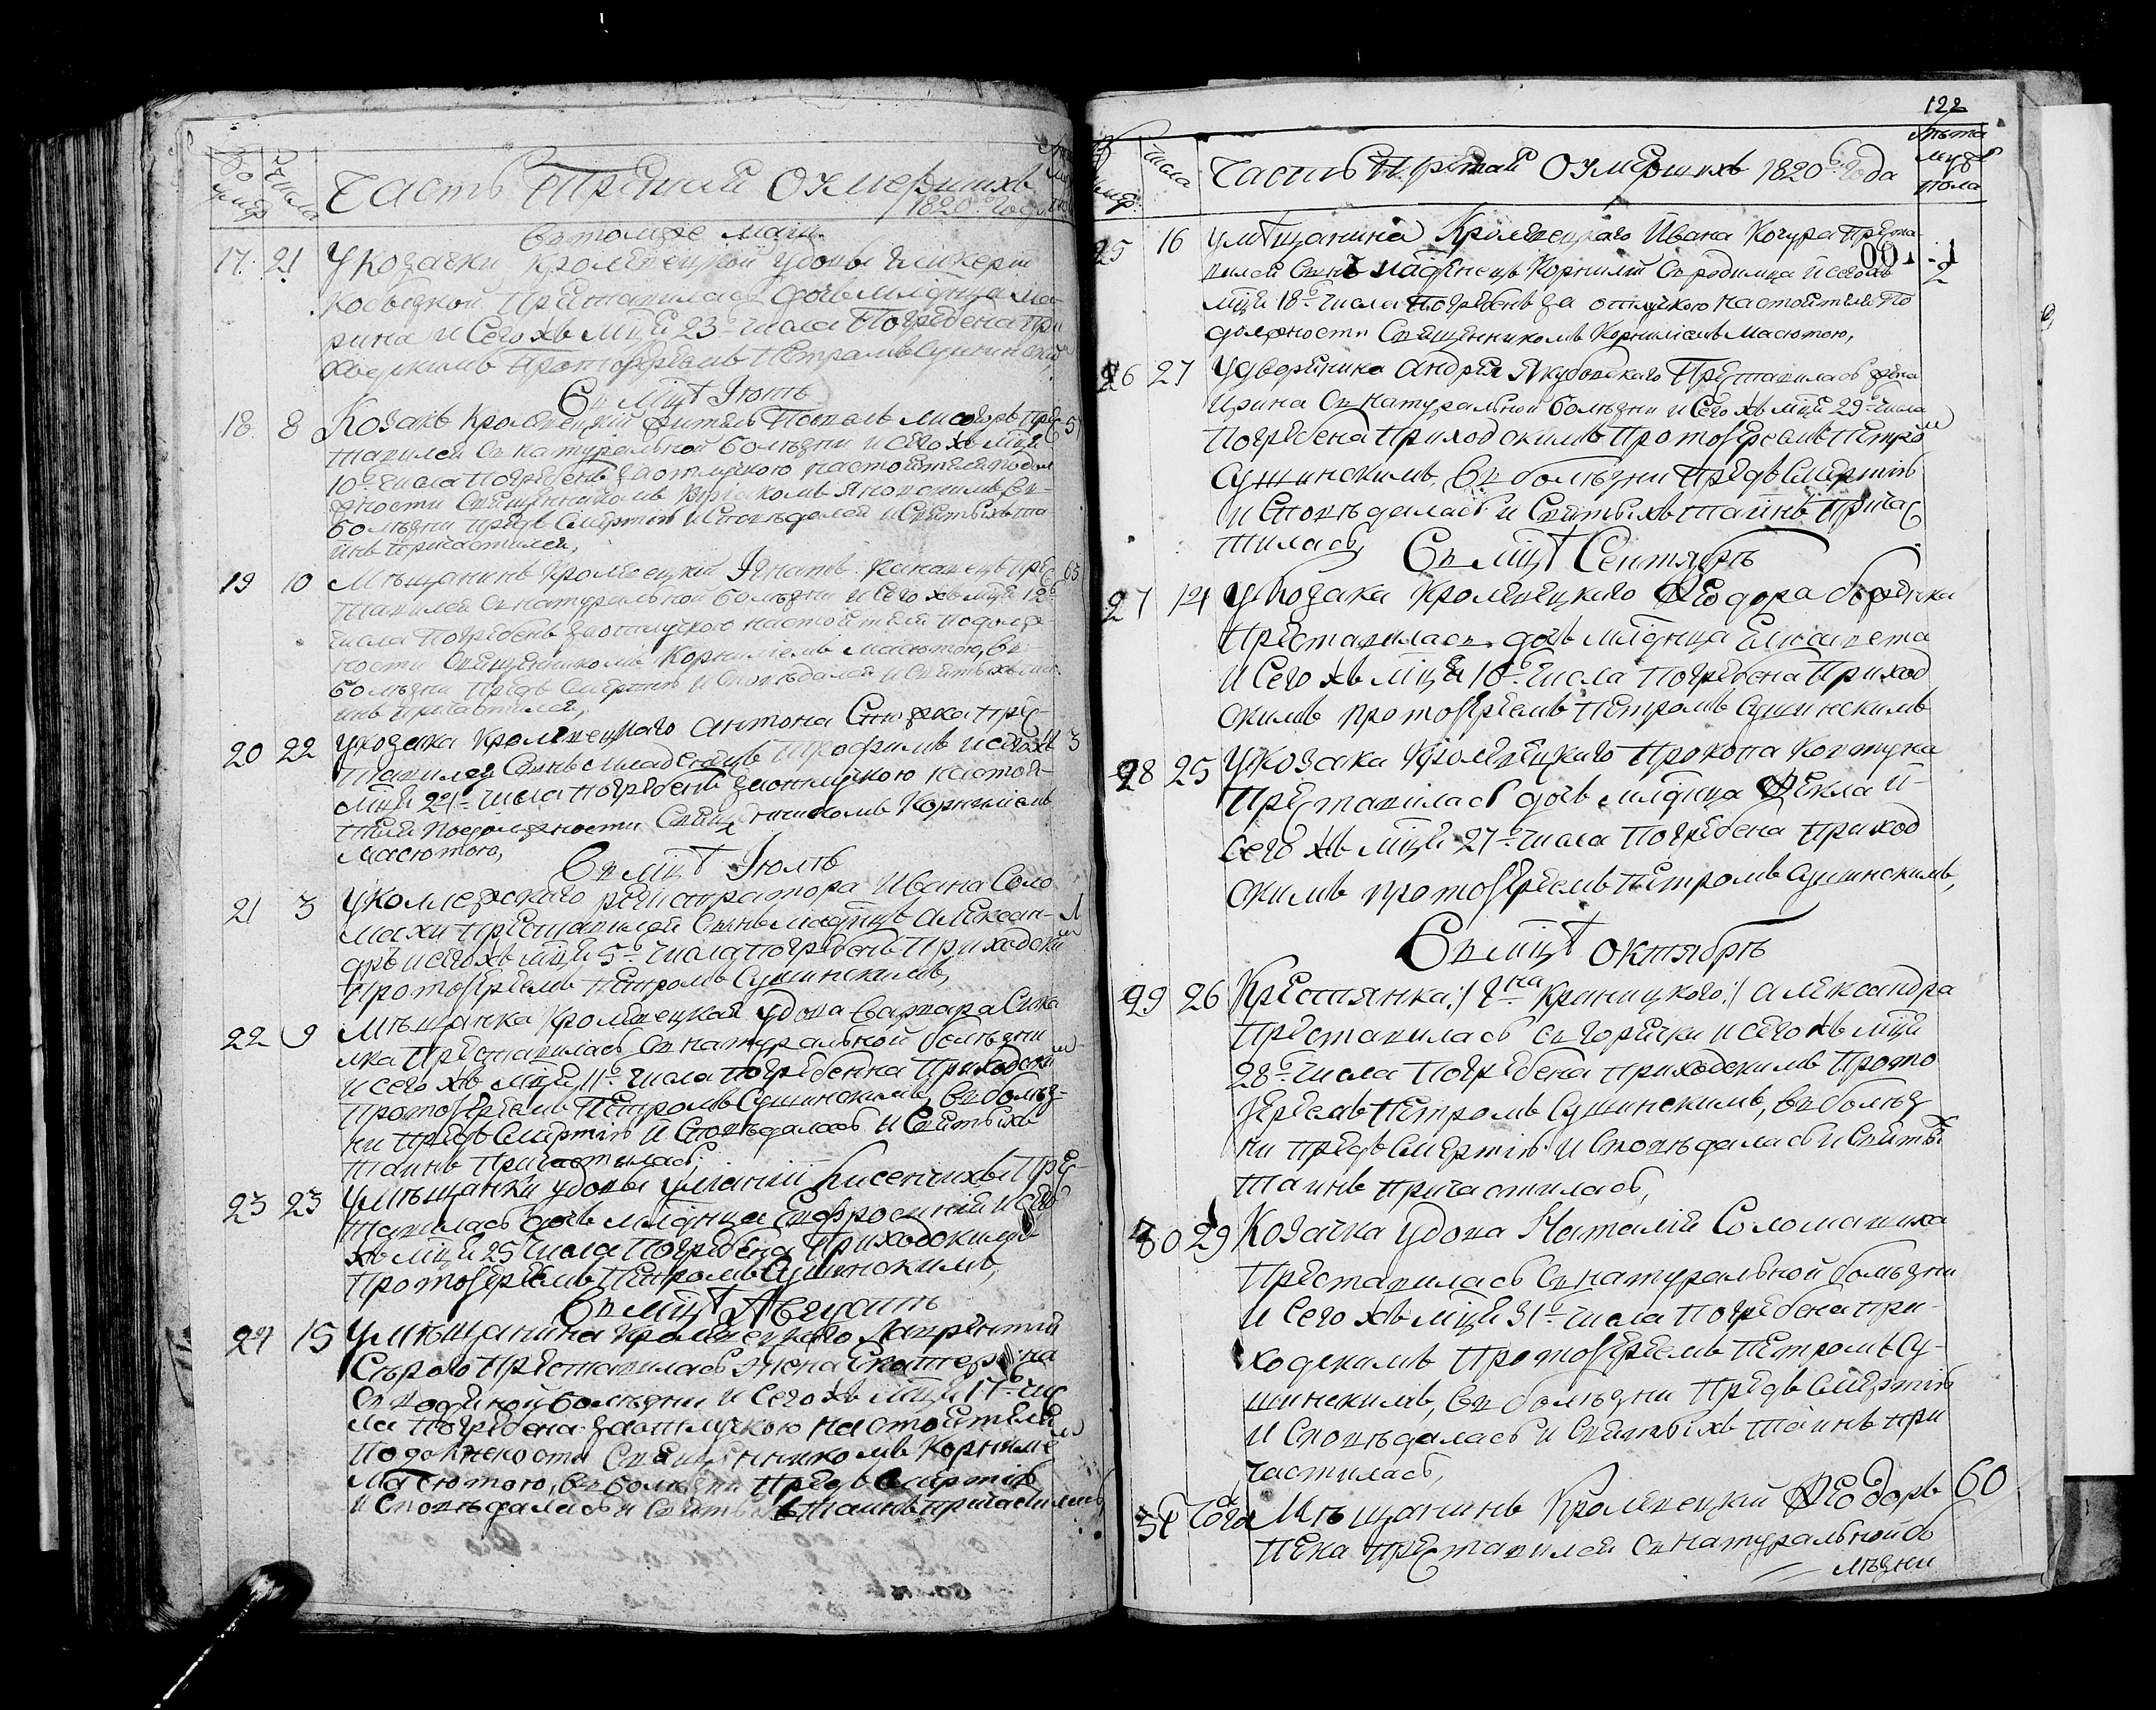 Часть Третая О умершихъ
1820го года
Втомже маи
17 21 У козачки Кролевецкой удовы Гликерии
преставилась дочь младенца Ма-
рина и Сего жъ мца 23го числа Погребена При
ходскимъ Протоіереемъ Петромъ Сушинским
Въ мцѣ Іюнѣ
18 8 Козакъ Кролевецкий житель пре
ставился отъ натуральной болѣзни и сего жъ мца
10го числа погребенъ за отлучкою настоятеля по дол
жности Священникомъ Яновскимъ въ
болѣзни предъ смертію исповѣдался и святыхъ та
инъ причастился,
19 10 Мѣщанинъ Кролевецкий Игнатъ пре 65
ставился отъ натуральной болѣзни и сего жъ мца 12го
числа погребенъ за отлучкою настоятеля по долж
ности Священникомъ Корнилиемъ Масютою, въ
болѣзни предъ смертію и споведался и святыхъ та
инъ причастился,
20 22 У козака Кролевецкого Антона пре- 3
ставился сынъ младенецъ Трофимъ и сего жъ
мца 24го числа погребенъ за отлучкою настоя-
теля по должности Священникомъ Корнилиемъ
Масютою,
Въ мцѣ Іюлѣ
21 3 У Коллежского регистратора Ивана Соло
махи преставился сынъ младенецъ Алексан- 1
дръ и сего жъ мца 5го числа погребенъ Приходским
Протоіереемъ Петромъ Сушинскимъ,
22 9 Мѣщанка Кролевецкая удова Варвара
преставилась отъ натуральной болѣзни
и сего жъ мца 11го числа погребенна Приходским
Протоіереемъ Петромъ Сушинскимъ, въ болѣз-
ни предъ смертію и споведалась и Святыхъ
таинъ причастилась,
23 23 У мѣщанки удовы Улянии пре-
ставилась дочь младенца Евфросиния и сего
жъ мца 25 числа погребена Приходскимъ
Протоіереемъ Петромъ Сушинскимъ,
Въ мцѣ Августѣ
24 15 У мѣщанина Кролевецкого Лаврентия
Сѣрого преставилась жена Екатерина
болѣзни и сего жъ мца 17го чис
ла погребена за отлучкою настоятеля
по должности Священникомъ Корнилием
Масютою, въ болѣзни предъ смертію
и споведалась и Святыхъ таинъ причастилась
122
числа Часть Третая О умершихъ 1820го года Лѣта
муж
пола
25 16 У мѣщанина Кролевецкаго Ивана Кочура преста
вился сынъ младенецъ Корнилий съ родимца и сего жъ 2
мца 18го числа погребенъ за отлучкою настоятеля по
должности Священникомъ Корнилиемъ Масютою,
26 27 У дворянина Андрея Якубовскаго Преставилась жена
Ирина отъ натуральной болѣзни и сего жъ мца 29го числа
погребена Приходскимъ Протоіереемъ Петром
Сушинскимъ, въ болѣзни предъ смертію
и споведалась и Святыхъ таинъ причас
тилась,
Въ мцѣ Сентябрѣ
27 14 У козака Кролевецкого Феодора
преставилась дочь младенца Елисавета
и сего жъ мца 16го числа погребена Приход
скимъ протоіереемъ Петромъ Сушинскимъ
28 25 У козака Кролевецкого Прокопа Ковтуна
преставилась дочь младенца Фекла и
сего жъ мца 27го числа погребена приход
скимъ протоіереемъ Петромъ Сушинскимъ,
Въ мцѣ Октябрѣ
29 26 Крестянка /: гна Краницкого :/ Александра
преставилась съ горячки и сего жъ мца
28го числа погребена приходскимъ Прото
іереемъ Петромъ Сушинскимъ, въ болѣз
ни предъ смертію и споведалась и Святых
таинъ причастилась,
30 29 Козачка удова Наталия Соломашиха
преставилась отъ натуральной болѣзни
и сего жъ мца 31го числа погребена при-
ходскимъ Протоіереемъ Петромъ Су-
шинскимъ, въ болѣзни предъ смертію
и споведалась и Святыхъ таинъ при
частилась,
31 Мѣщанинъ Кролевецкий Феодоръ 60
преставился отъ натуральной бо
лѣзни